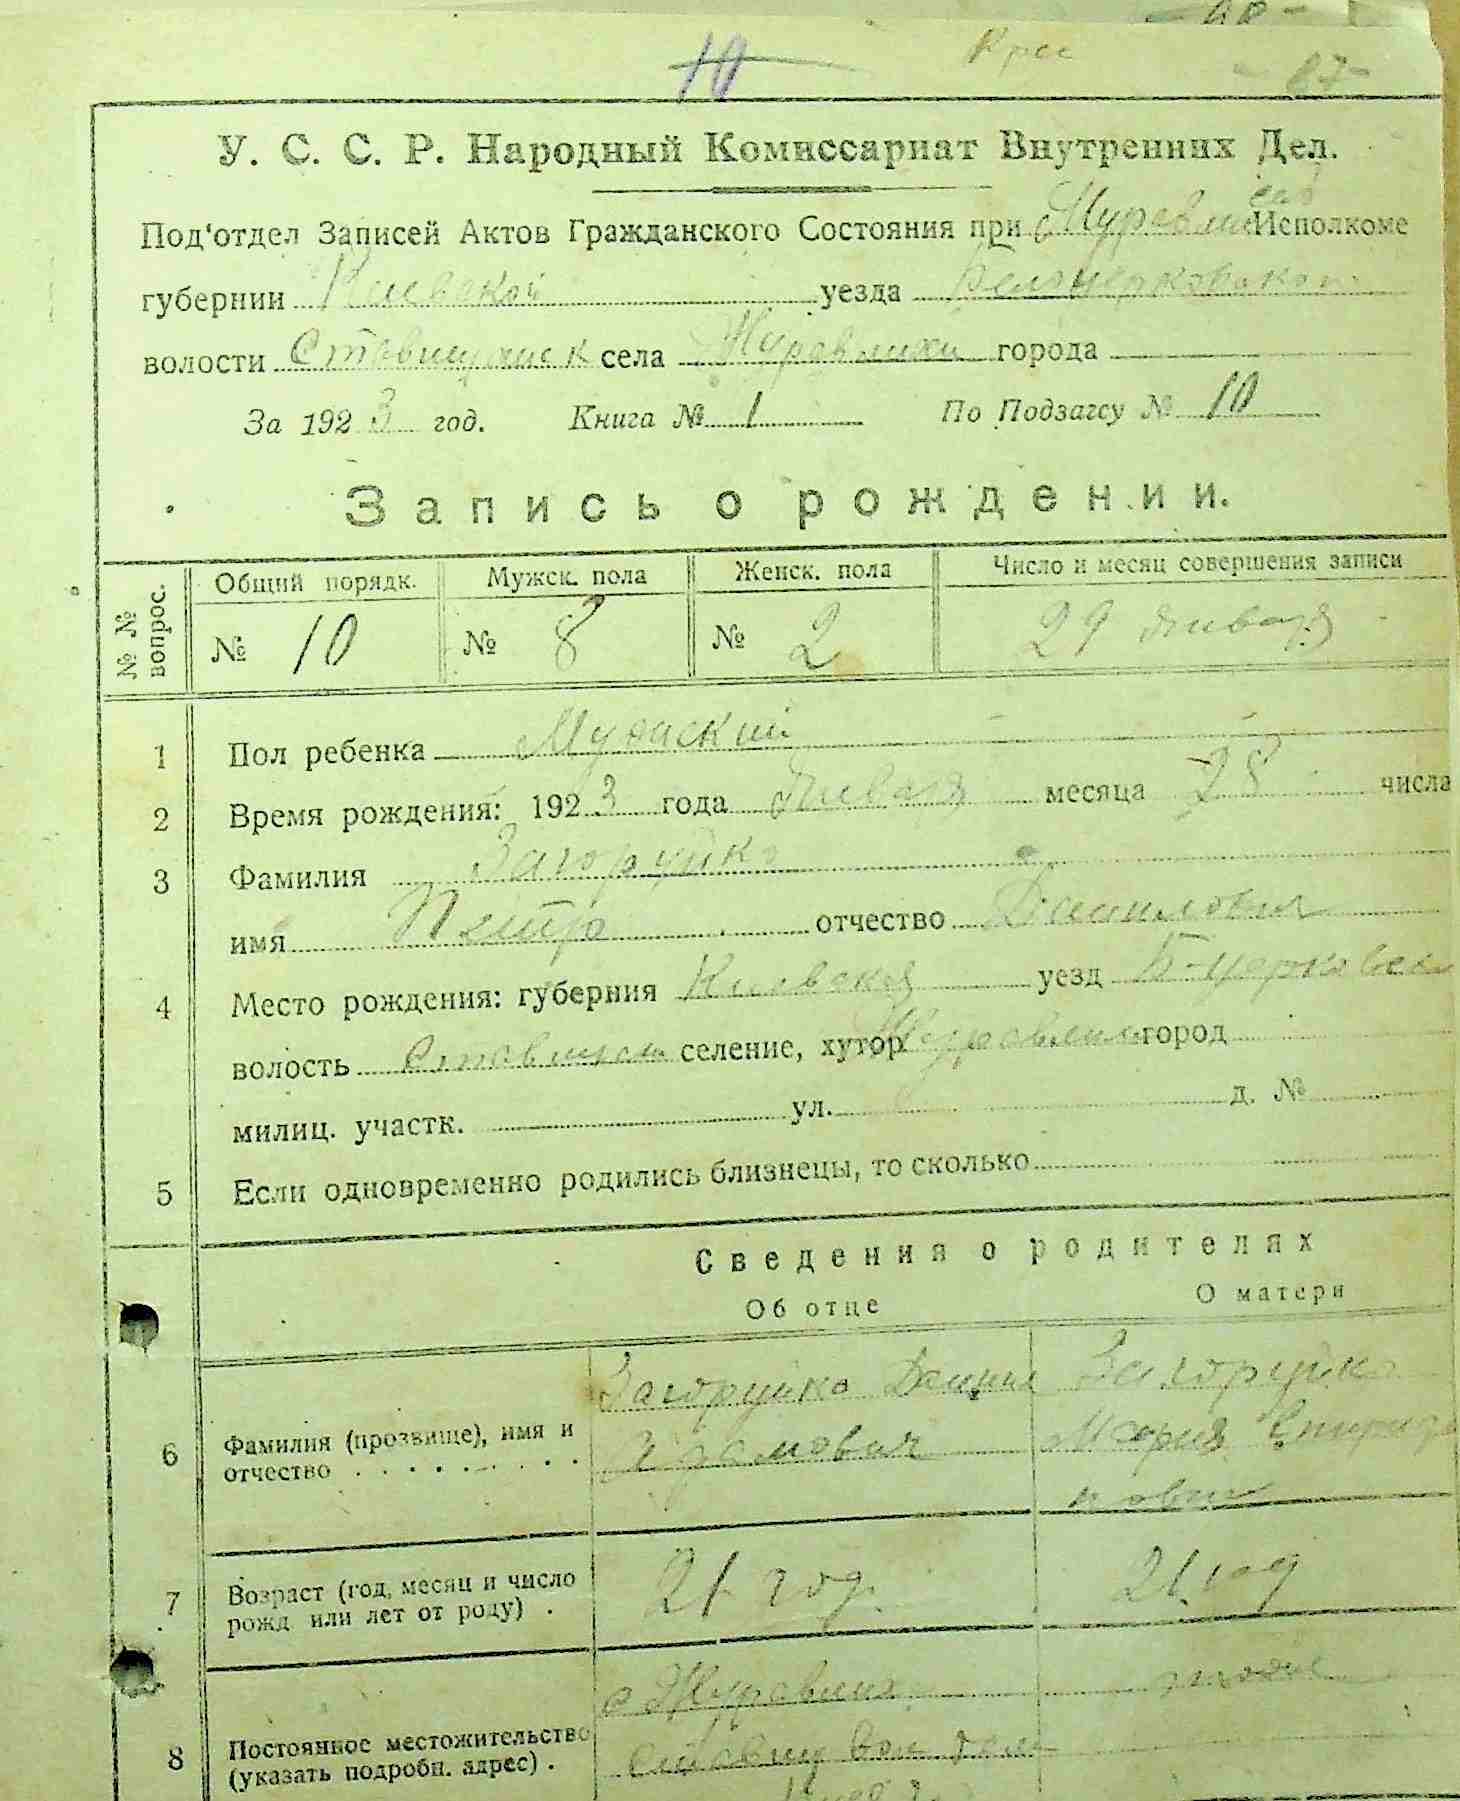 10
У. С. С. Р. Народный Комиссариат Внутренних Дел.
Под'отдел Записей Актов Гражданского Состояния при Исполкоме
губернии Киевской уезда Белоцерковского
волости Ставищанск села Журавлихи города
За 1923 год. Книга № 1 По Подзагсу № 10
Запись о рождении.
№ № вопрос. Общий порядк. Мужск. пола Женск. пола Число и месяц совершения записи
№ 10 № 8 № 2 29 января
1 Пол ребенка Мужской
2 Время рождения: 1923 года Января месяца 28 числа
3 Фамилия Загоруйко
имя Петр отчество Данилович
4 Место рождения: губерния Киевская уезд Б-церковск
волость селение, хутор город
милиц. участк. ул. д. №
5 Если одновременно родились близнецы, то сколько
Сведения о родителях
Об отце О матери
6 Фамилия (прозвище), имя и Загоруйко Данил Загоруйко
отчество Мария
7 Возраст (год, месяц и число 21 год. 21 год
рожд. или лет от роду) .
8 Постоянное местожительство с тоже
(указать подробн. адрес) .